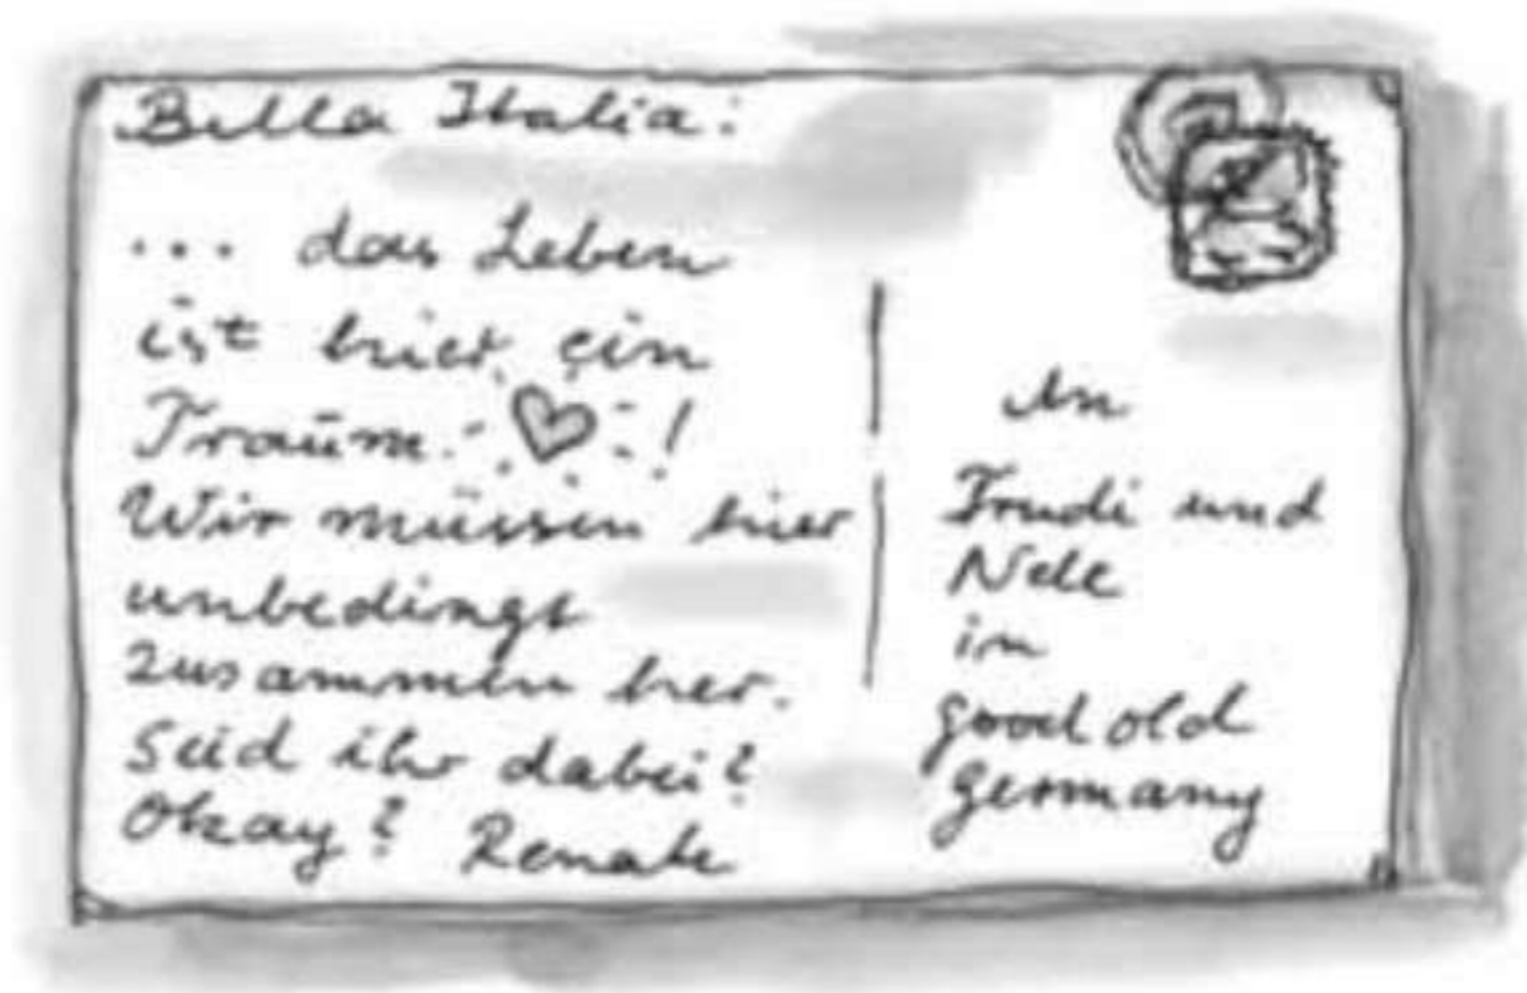 Bella Italia:
... das Leben
ist hier ein
Traum ♥ !
Wir müssen hier
unbedingt
zusammen her.
Seid ihr dabei?
Okay? Renate
An
Trudi und
Nele
in
good old
Germany